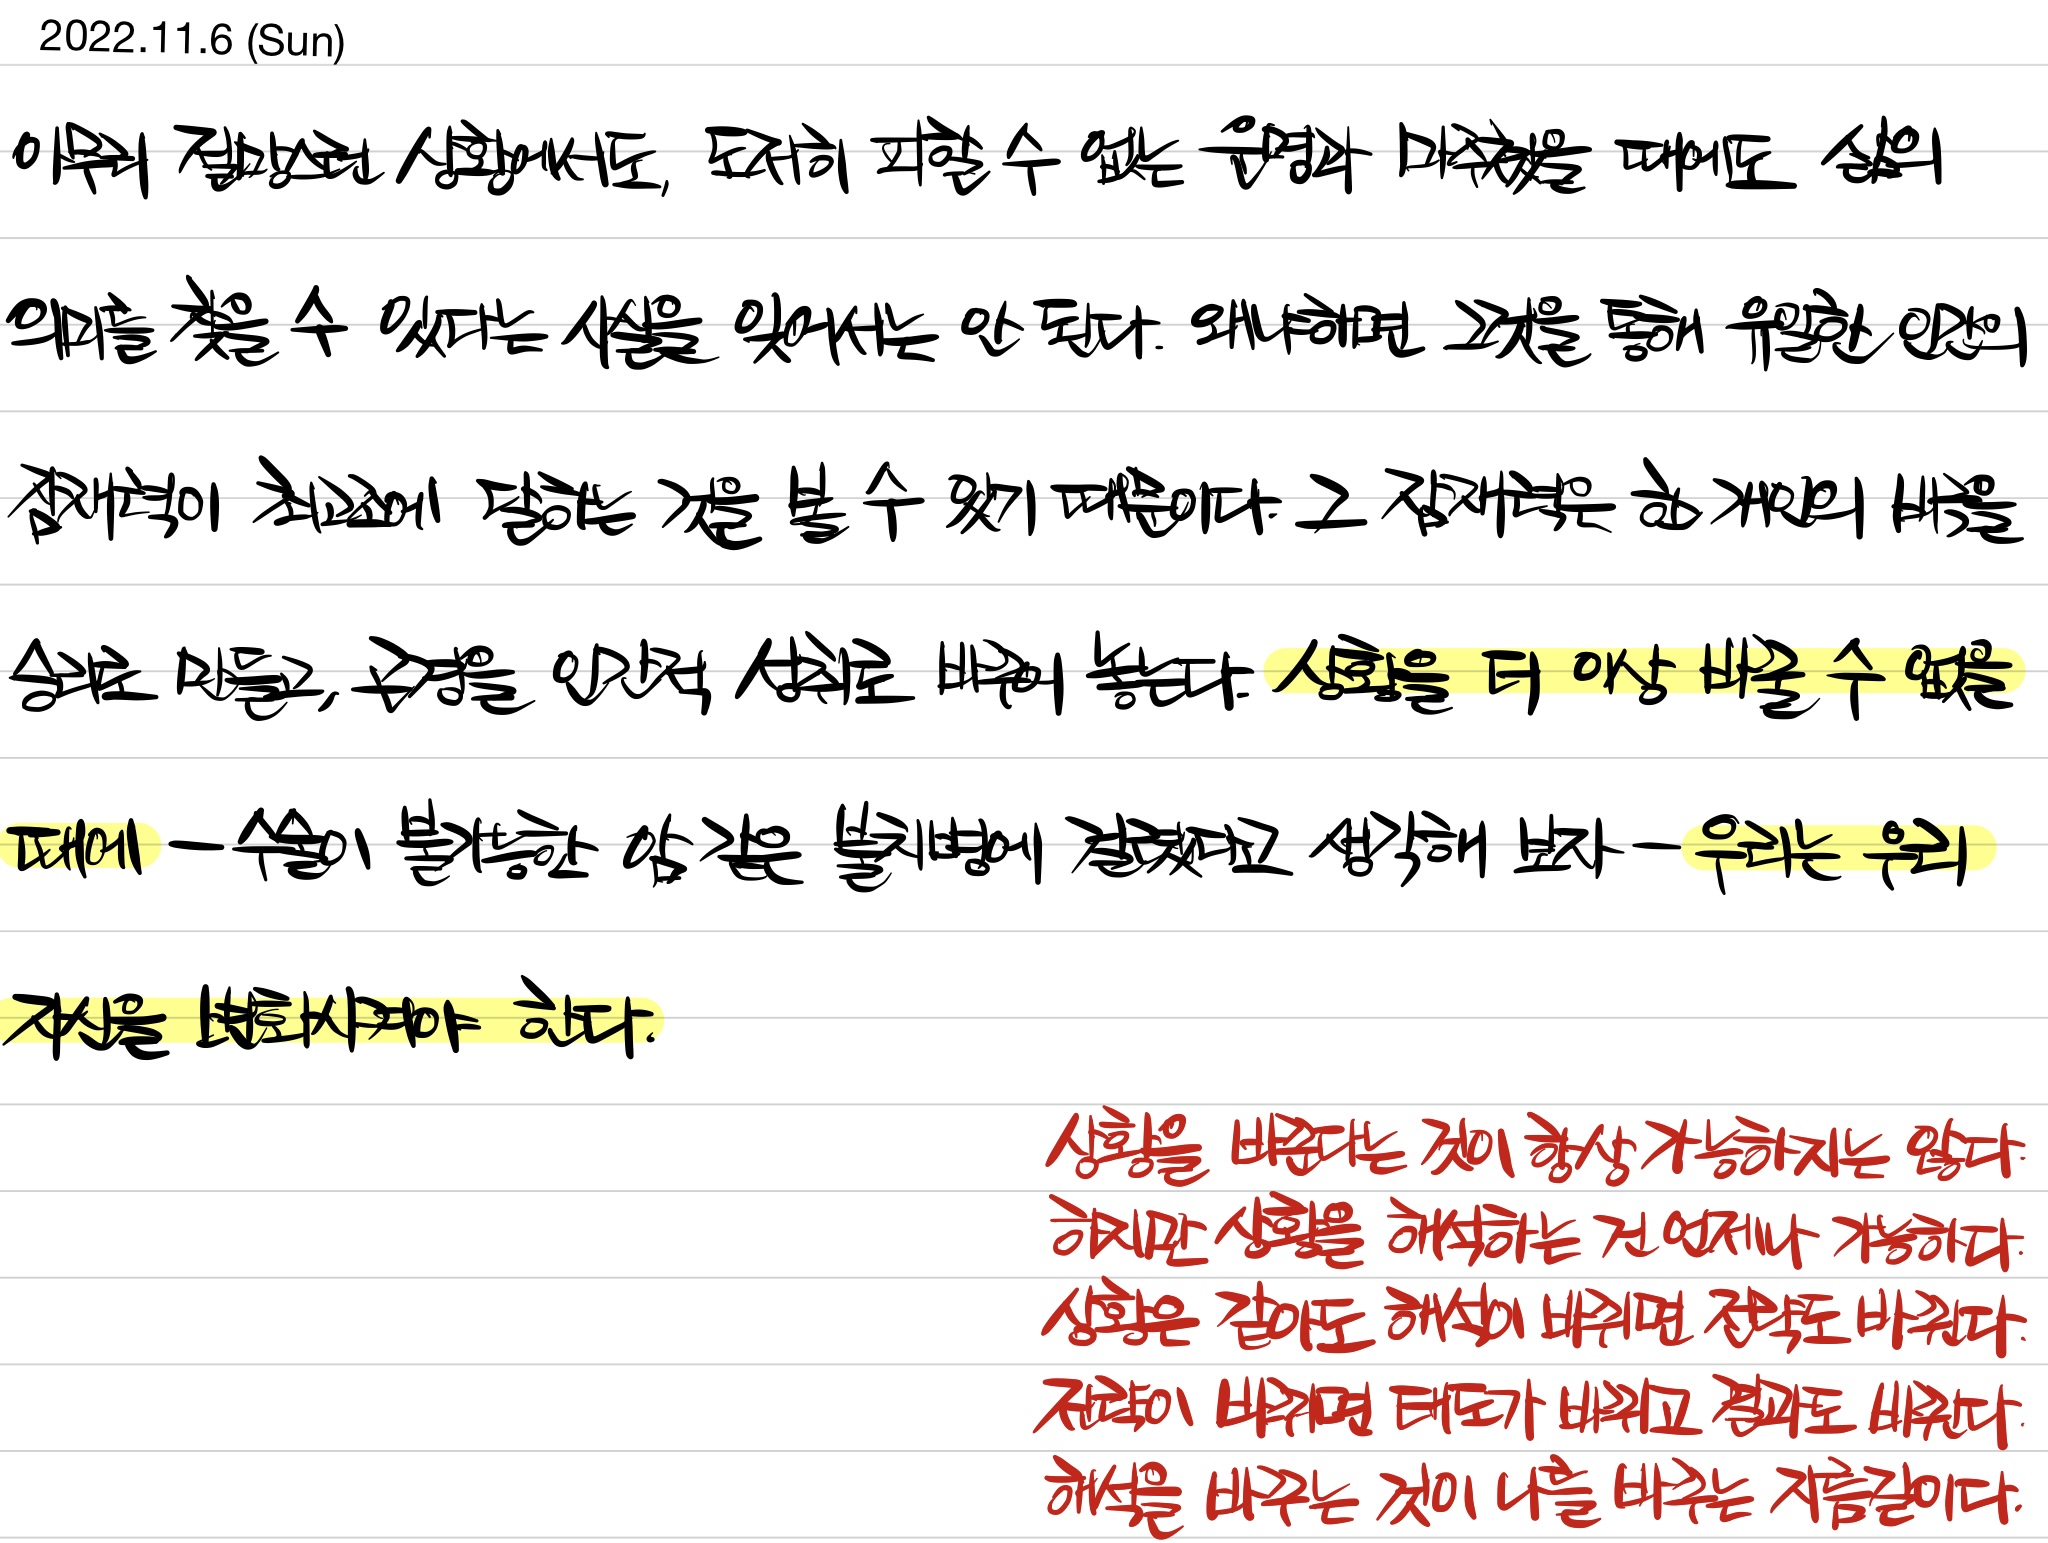 2022.11.6 (Sun)
아무리 절망스런 상황에서도, 도저히 피할 수 없는 운명과 마주쳤을 때에도 삶의
의미를 찾을 수 있다는 사실을 잊어서는 안 된다. 왜냐하면 그것을 통해 유일한 인간의
잠재력이 최고조에 달하는 것을 볼 수 있기 때문이다. 그 잠재력은 한 개인의 비극을
승리로 만들고, 곤경을 인간적 성취로 바꾸어 놓는다. 상황을 더 이상 바꿀 수 없을
때에 — 수술이 불가능한 암 같은 불치병에 걸렸다고 생각해 보자 — 우리는 우리
자신을 변화시켜야 한다.
상황을 바꾼다는 것이 항상 가능하지는 않다.
하지만 상황을 해석하는 건 언제나 가능하다.
상황은 같아도 해석이 바뀌면 전략도 바뀐다.
전략이 바뀌면 태도가 바뀌고 결과도 바뀐다.
해석을 바꾸는 것이 나를 바꾸는 지름길이다.